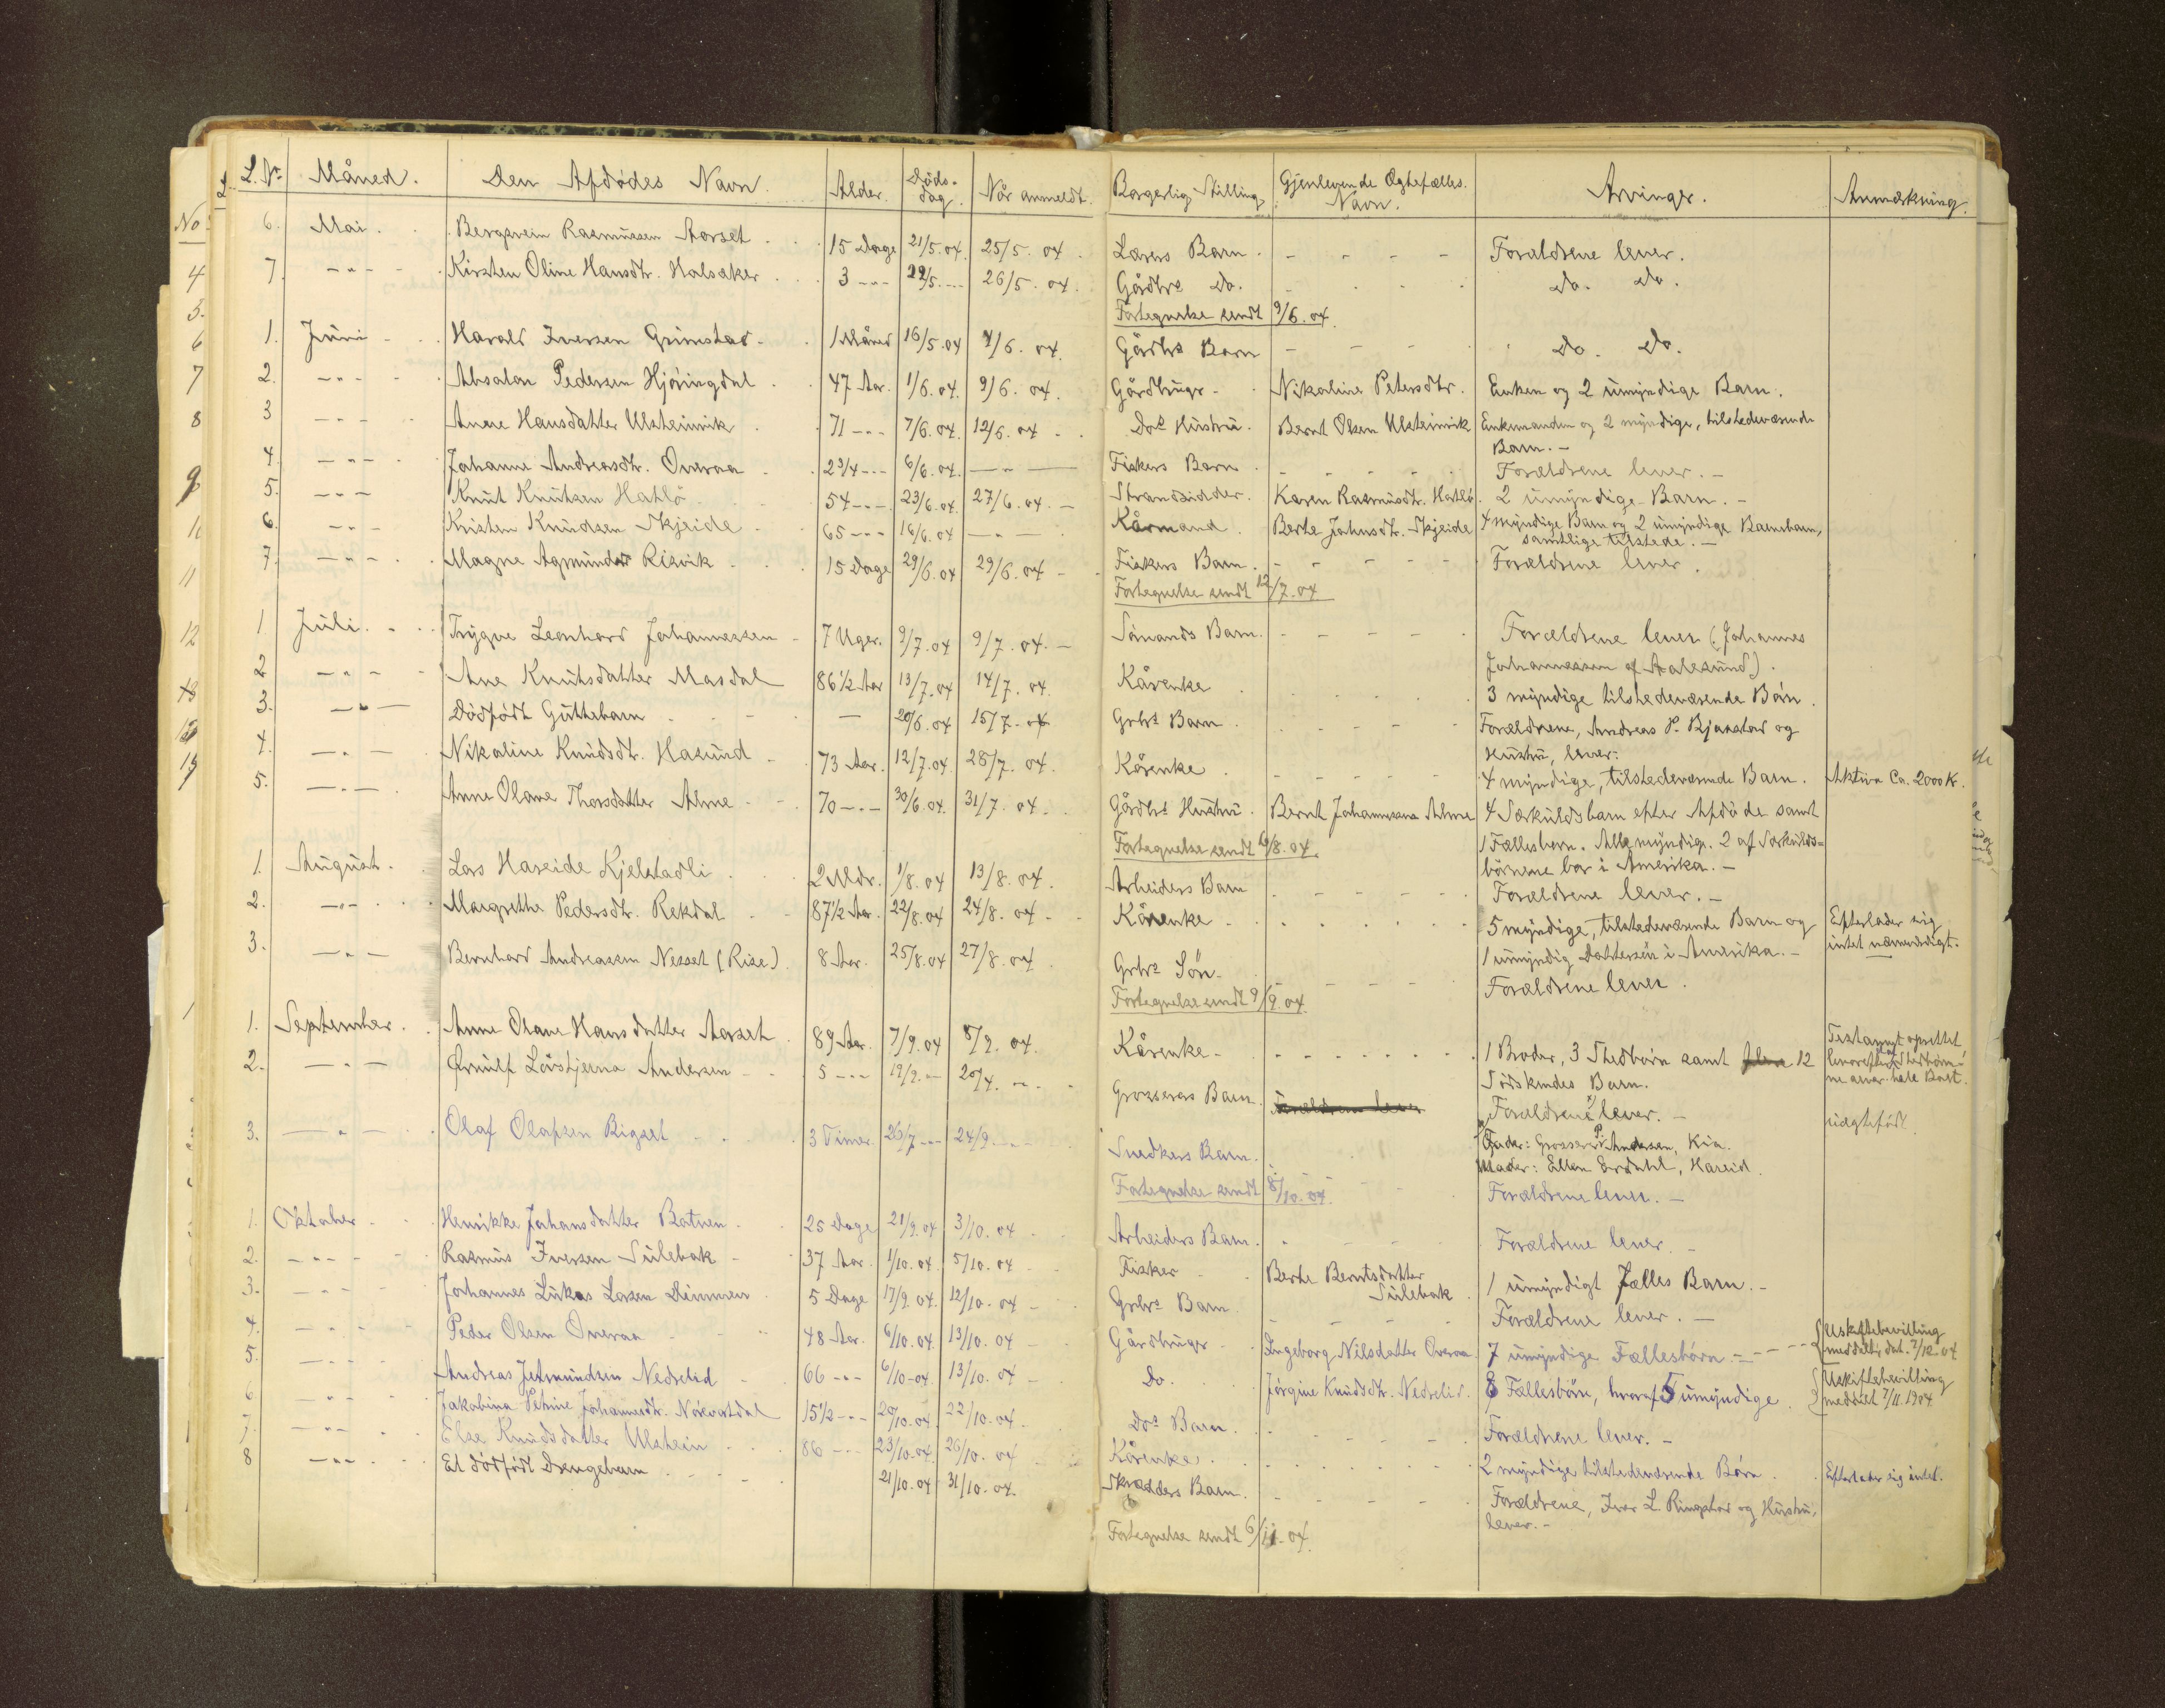 L. Nr. Måned. Den Afdødes Navn. Alder. Dødsdag. Når anmeldt. Borgerlig Stilling Gjenlevende Ægtefælles Navn. Arvinger. Anmærkning.
6. Mai Rasmussen Aarset 15 Dage 21/5.04. 25/5.04. Lærers Barn Forældrene lever.
7. -"- Kirsten Oline Hansdtr. Halsaker 3 -"- 22/5.-"- 26/5.04. Gårdbrs Do. Do. Do.
Fortegnelse sendt 9/6.04.
1. Juni Harald Iversen Grimstad 1 Måned 16/5.04 4/6.04. Gårdbrs Barn Do. Do.
2. -"- Absalon Pedersen Hjøringdal 47 Aar. 1/6.04. 9/6.04. Gårdbruger Nikoline Petersdtr. Enken og 2 umyndige Barn.
3 -"- Anne Hansdatter Ulsteinvik 71 -"- 7/6.04. 12/6.04. Dos Hustru. Bernt Olsen Ulsteinvik Enkemanden og 2 myndige, tilstedeværende
Barn.-
4. -"- Johanne Andreasdtr. Overaa 2 3/4 -"- 6/6.04. -"- Fiskers Barn Forældrene lever.-
5. -"- Knut Knutsen Hatlø 54 -"- 23/6.04. 27/6.04. Strandsidder. Karen Rasmusdtr. Hatlø. 2 umyndige Barn.-
6. -"- Kristen Knudsen Skjeide 65 -"- 16/6.04 -"- Kårmand. Berte Johnsdtr. Skjeide 4 myndige Barn og 2 umyndige Barnebarn,
samtlige tilstede.-
7. -"- Magne Agmunder Risvik 15 Dage 29/6.04 29/6.04 Fiskers Barn. Forældrene lever.
Fortegnelse sendt 12/7.04
1. Juli. Trygve Leonhard Johannessen 7 Uger. 2/7.04 9/7.04.- Sømands Barn. Forældrene lever (Johannes
Johannessen af Aalesund).
2 -"- Ane Knutsdatter Masdal 86 1/2 Aar 13/7.04 14/7.04. Kårenke 3 myndige tilstedeværende Børn.
3. -"- Dødfødt Guttebarn - 20/6.04 15/7.04 Grbrs Barn Forældrene, Andreas P. Bjaastad og
Hustru, lever.
4. -"- Nikoline Knudsdtr. Hasund 73 Aar. 12/7.04. 28/7.04. Kårenke 4 myndige, tilstedeværende Barn. Aktiva Ca. 2000 K.
5. -"- Anne Olane Thorsdatter Alme 70 -"- 30/6.04. 31/7.04. Gårdbrs Hustru. Bernt Johannessen Alme 4 Særkuldsbarn efter Afdøde samt
Fortegnelse sendt 6/8.04. 1 Fællesbarn. Alle myndige. 2 af Særkulds-
børnene bor i Amerika.-
1. August. Lars Hareide Kjelstadli 2 Mdr. 1/8.04 13/8.04. Arbeiders Barn Forældrene lever.-
2. -"- Margrethe Pedersdtr. Rekdal 87 1/2 Aar. 22/8.04 24/8.04 Kårenke 5 myndige, tilstedeværende Barn og Efterlader sig
1 umyndig Dattersøn i Amerika.- intet nævneværdigt.
3. -"- Bernhard Andreassen Nesset (Rise) 8 Aar. 25/8.04 27/8.04 Grbrs Søn Forældrene lever.
Fortegnelse sendt 9/9.04
1. September. Anne Olane Hansdatter Aarset 89 Aar. 7/9.04 8/9.04. Kårenke 1 Broder, 3 Stedbørn samt 12 Testament oprettet
Sødskendes Barn. hvorefter Stedbørne-
ne arver hele Boet.
2. -"- Ørnulf Løvstjerna Andersen 5 -"- 20/9. -"- Grosserers Barn Forældrene lever Forældrene lever.- uægtefødt
Fader: Grosserer P. Andersen, Kra.
Moder: Ellen Erdahl, Hareid.
3. -"- Olaf Olafsen Rigset 3 Timer. 26/7 -"- 24/9. Snedkers Barn. Forældrene lever.-
Fortegnelse sendt 8/10.04.
1. Oktober Henrikke Johansdatter Botnen 25 Dage 21/9.04 3/10.04 Arbeiders Barn. Forældrene lever.-
2. -"- Rasmus Iversen Sulebak 37 Aar. 1/10.04. 5/10.04 Fisker Berte Berntsdatter
Sulebak 1 umyndigt Fælles Barn.-
3. -"- Johannes Lukas Larsen Dimmen 5 Dage 17/9.04. 12/10.04 Grbrs Barn Forældrene lever.-
4. -"- Peder Olsen Overaa 48 Aar. 6/10.04. 13/10.04 Gårdbruger Ingeborg Nilsdatter Overaa 7 umyndige Fællesbørn.- Uskiftebevilling
meddelt, dat. 7/12.04
5. -"- Andreas Jetmundsen Nedrelid 66 -"- 6/10.04 13/10.04 Do. Jørgine Knudsdtr. Nedrelid. 8 Fællesbørn, hvoraf 5 umyndige. Uskiftebevilling
meddelt 7/11.1904
6. -"- Jakobina Petrine Johannesdtr. 15 1/2 -"- 20/10.04. 22/10.04. Dos Barn. Forældrene lever.-
7. -"- Else Knudsdatter Ulstein 86 -"- 23/10.04. 26/10.04 Kårenke. 2 myndige tilstedeværende Børn. Efterlader sig intet.
8 -"- Et dødfødt Drengebarn 21/10.04 31/10.04. Skrædders Barn. Forældrene, Iver L. Ringstad og Hustru,
lever.-
Fortegnelse sendt 6/11.04.